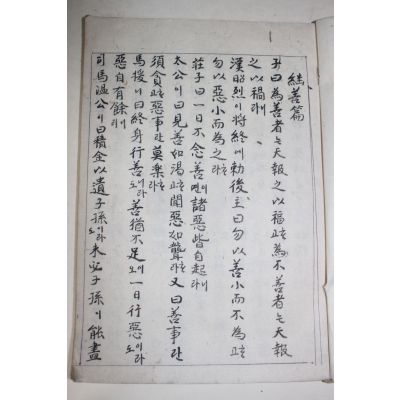 繼善篇
子曰為善者는天報之以福고為不善者는天報
之以禍니라
漢昭烈이將終에勅後主曰勿以善小而不為고
勿以惡小而為之라
莊子ㅣ曰一日不念善이면諸惡皆自起니라
太公이曰見善如渴고聞惡如聾라又曰善事란
須貪고惡事란莫樂라
馬援이曰終身行善이라도善猶不足이오一日行惡이라도
惡自有餘라
司馬溫公이曰積金以遺子孫이라도未必子孫이能盡